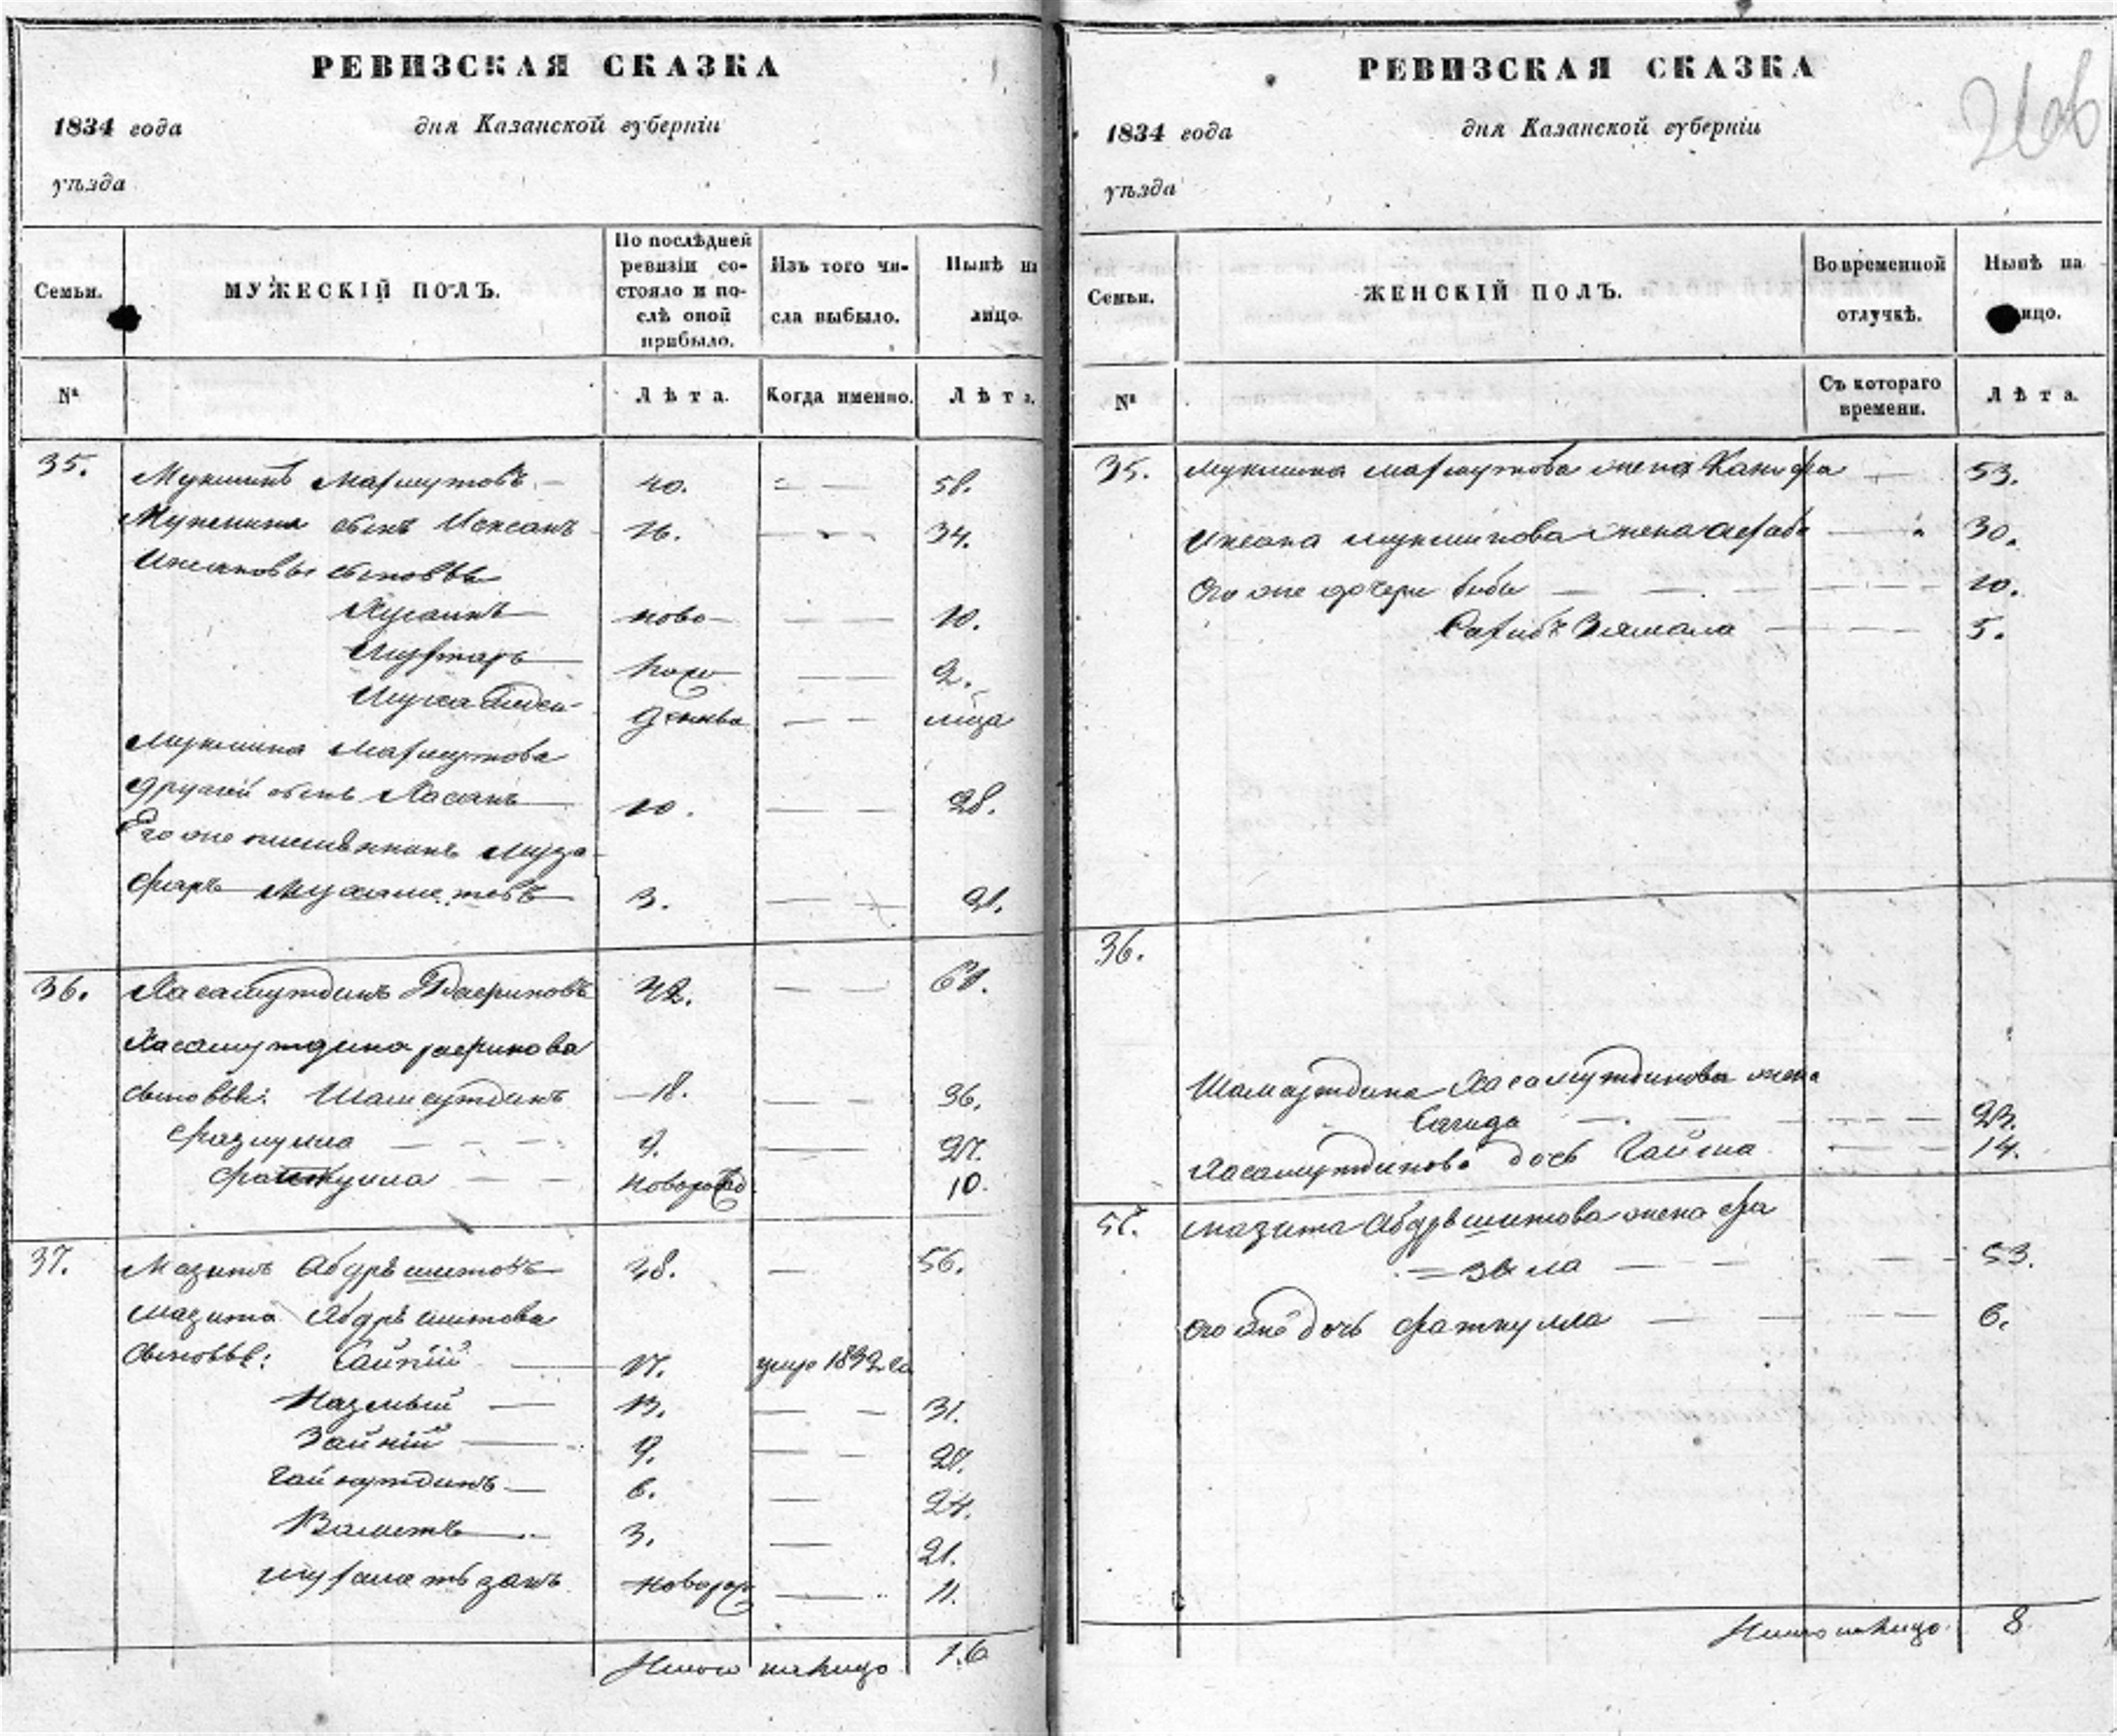 РЕВИЗСКАЯ СКАЗКА
1834 года дня Казанской губерніи
уѣзда
Семьи.
МУЖЕСКІЙ ПОЛЪ.
По послѣдней
ревизіи со-
стояло и по-
слѣ оной
прибыло.
Изъ того чи-
сла выбыло.
Нынѣ на
лицо.
№
Лѣта.
Когда именно.
Лѣта.
35. Мукминъ Махмутовъ 40. 58.
Мукмина сынъ Ихсанъ 16. 34.
Ихсановы сыновья
Хусаинъ ново- 10.
Мухтаръ рож 2.
лица
Мукмина Махмутова
другой сынъ Хасанъ 10. 28.
Его же племянникъ Муза-
фаръ Мухаметевъ 3. 21.
36. Хасамутдинъ 42. 60.
Хасамутдина
сыновья: Шамсутдинъ 18. 36.
Фазлулла 9. 27.
Фаткулла новорож 10.
37. Мазитъ Абдрѣшитовъ 38. 56.
Мазита Абдрѣшитова
сыновья: 17. умре 1832 го
13. 31.
Зайній 9. 27.
Гайнутдинъ 6. 24.
Валитъ 3. 21.
новорож 11.
Итого на лицо 16
РЕВИЗСКАЯ СКАЗКА
1834 года дня Казанской губерніи
уѣзда
Семьи.
ЖЕНСКІЙ ПОЛЪ.
Во временной
отлучкѣ.
Нынѣ на
лицо.
№
Съ котораго
времени.
Лѣта.
35. Мукмина Махмутова жена Ханифа 53.
Ихсана Мукминова жена 30.
Его же дочери Биби 10.
5.
36.
Шамсутдина Хасамутдинова жена
Сагида 23.
Хасамутдинова дочь 14.
37. Мазита Абдрѣшитова жена Фа
=зыла 53.
Его же дочь Фаткулла 6.
Итого на лицо. 8